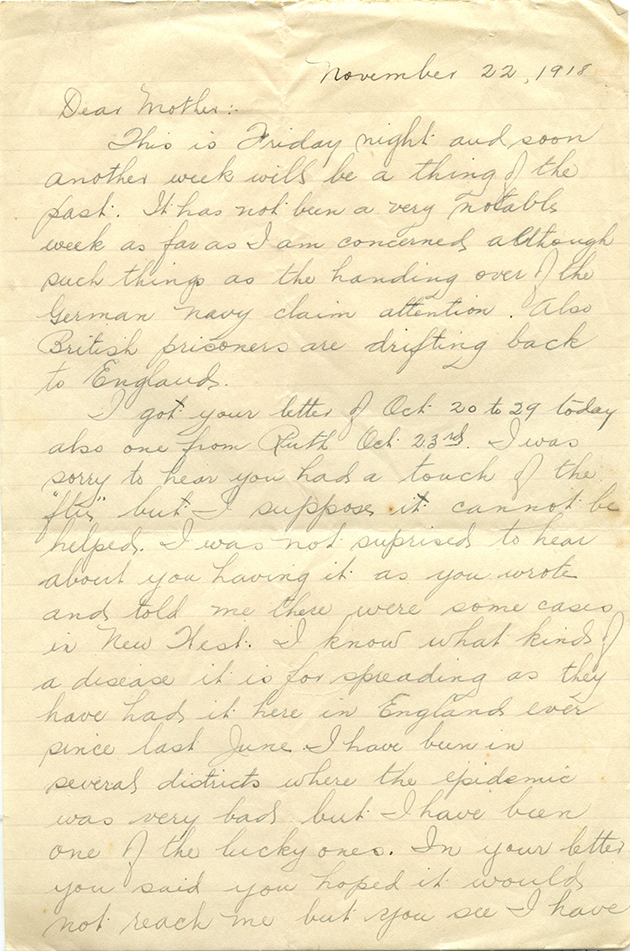 November 22, 1918
Dear Mother:-
This is Friday night and soon
another week will be a thing of the
past. It has not been a very notable
week as far as I am concerned although
such things as the handing over of the
German navy claim attention. Also
British prisoners are drifting back
to England.
I got your letter of Oct 20 to 29 today
also one from Ruth Oct 23rd. I was
sorry to hear you had a touch of the
"flu" but I suppose it cannot be
helped. I was not suprised to hear
about you having it as you wrote
and told me there were some cases
in New West. I know what kind of
a disease it is for spreading as they
have had it here in England ever
since last June. I have been in
several districts where the epidemic
was very bad but I have been
one of the lucky ones. In your letter
you said you hoped it would
not reach me but you see I have